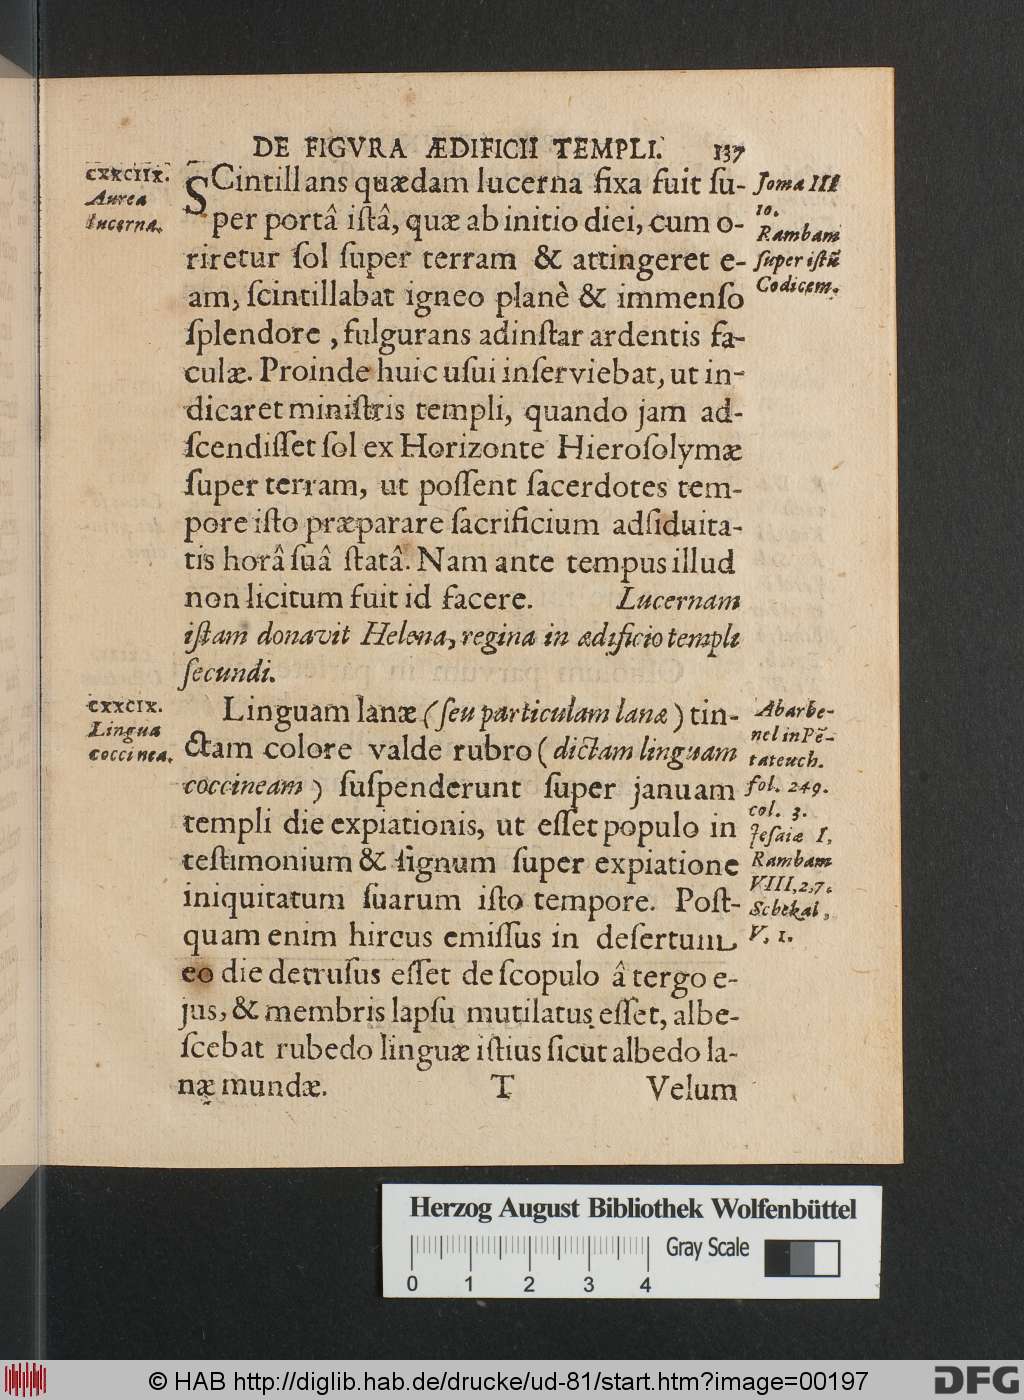 DE FIGVRA ÆDIFICII TEMPLI. 137
CXXCIIX.
Aurea
lucerna.
SCintillans quædam lucerna fixa fuit ſu-
per portâ iſtâ, quæ ab initio diei, cum o-
riretur ſol ſuper terram & attingeret e-
am, ſcintillabat igneo planè & immenſo
ſplendore , fulgurans adinſtar ardentis fa-
culæ. Proinde huic uſui inſerviebat, ut in-
dicaret miniſtris templi, quando jam ad-
ſcendiſſet ſol ex Horizonte Hieroſolymæ
ſuper terram, ut poſſent ſacerdotes tem-
pore iſto præparare ſacrificium adſiduita-
tis horâ ſuâ ſtatâ. Nam ante tempus illud
non licitum fuit id facere. Lucernam
iſtam donavit Helena, regina in ædificio templi
ſecundi.
Joma III
10.
Rambam
ſuper iſtũ
Codicem.
CXXCIX.
Lingua
coccinea.
Linguam lanæ (ſeu particulam lanæ) tin-
ctam colore valde rubro (dictam linguam
coccineam) ſuſpenderunt ſuper januam
templi die expiationis, ut eſſet populo in
teſtimonium & ſignum ſuper expiatione
iniquitatum ſuarum iſto tempore. Poſt-
quam enim hircus emiſſus in deſertum
eo die detruſus eſſet de ſcopulo â tergo e-
jus, & membris lapſu mutilatus eſſet, albe-
ſcebat rubedo linguæ iſtius ſicut albedo la-
næ mundæ. T Velum
Abarbe-
nel in Pẽ-
tateuch.
fol. 249.
col. 3.
Jeſaiæ I,
Rambam
VIII,2,7.
Schekal,
V, 1.
Herzog August Bibliothek Wolfenbüttel
Gray Scale
0 1 2 3 4
© HAB http://diglib.hab.de/drucke/ud-81/start.htm?image=00197
DFG